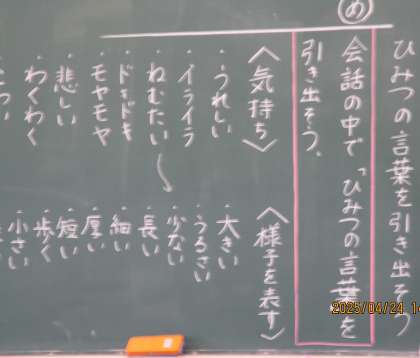 ひみつの言葉を引き出そう
め
会話の中で「ひみつの言葉を
引き出そう。
〈気持ち〉
・うれしい
・イライラ
・ねむたい
・ドキドキ
・モヤモヤ
・悲しい
・わくわく
〈様子を表す〉
・大きい
・うるさい
・少ない
・長い
・細い
・厚い
・短い
・歩く
・小さい
2025/04/24 14